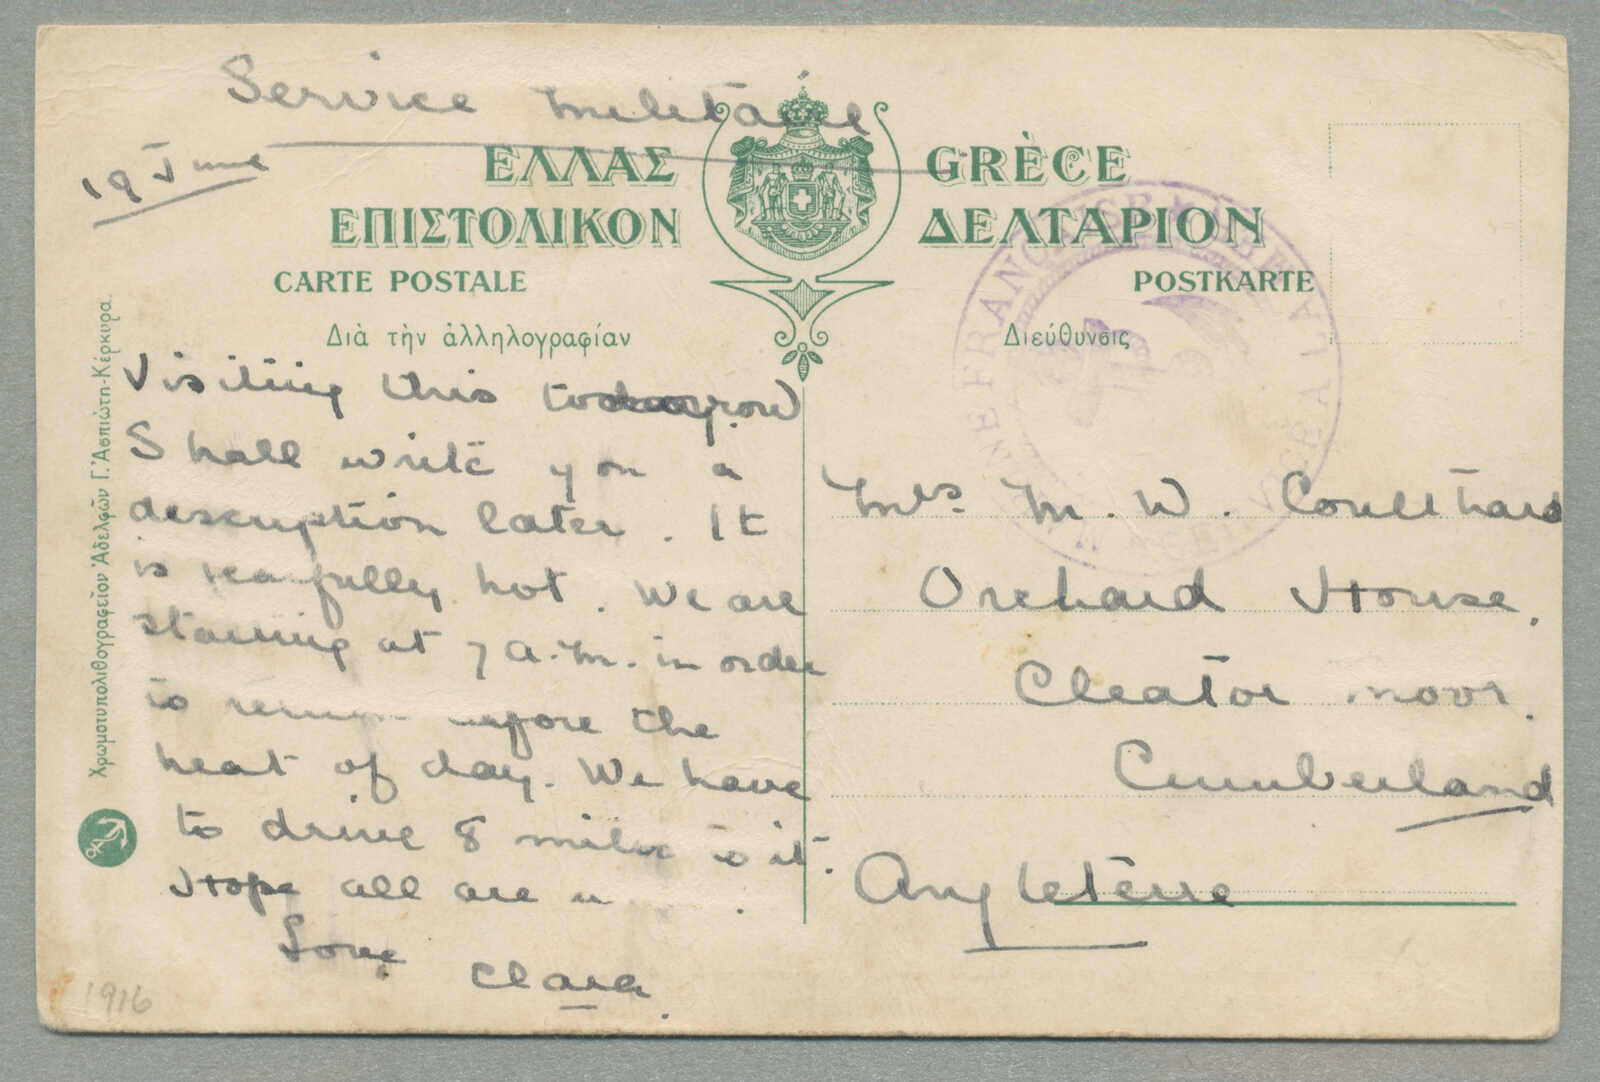 Service Militaire
19 June
ΕΛΛΑΣ GRÈCE
ΕΠΙΣΤΟΛΙΚΟΝ ΔΕΛΤΑΡΙΟΝ
CARTE POSTALE POSTKARTE
Διὰ τὴν ἀλληλογραφίαν
Διεύθυνσις
Visiting this
Shall write you a
description later. It
is fearfully hot. We are
starting at 7 a.m. in order
to return before the
heat of day. We have
to drive 8 miles to it.
Hope all are
Love
Clara.
Mrs. M. W. Coulthard
Orchard House,
Cleator Moor.
Cumberland
Angleterre
Χρωμοτυπολιθογραφεῖον Ἀδελφῶν Γ. Ἀσπιώτη-Κέρκυρα.
1916
MARINE FRANÇAISE